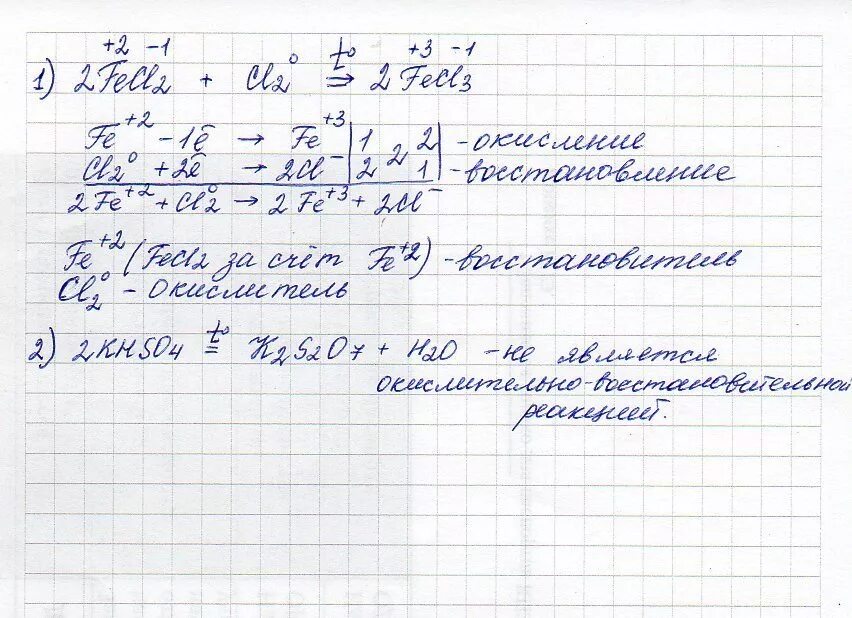 +2 -1 0 t° +3 -1
1) 2FeCl2 + Cl2 ⇒ 2FeCl3
Fe+2 - 1ē → Fe+3 | 1 2 2 | - окисление
Cl2⁰ + 2ē → 2Cl⁻ | 2 1 | - восстановление
2Fe+2 + Cl2⁰ → 2Fe+3 + 2Cl⁻
Fe+2 (FeCl2 за счёт Fe+2) - восстановитель
Cl2⁰ - окислитель
2) 2KHSO4 t° = K2S2O7 + H2O - не является
окислительно-восстановительной
реакцией.